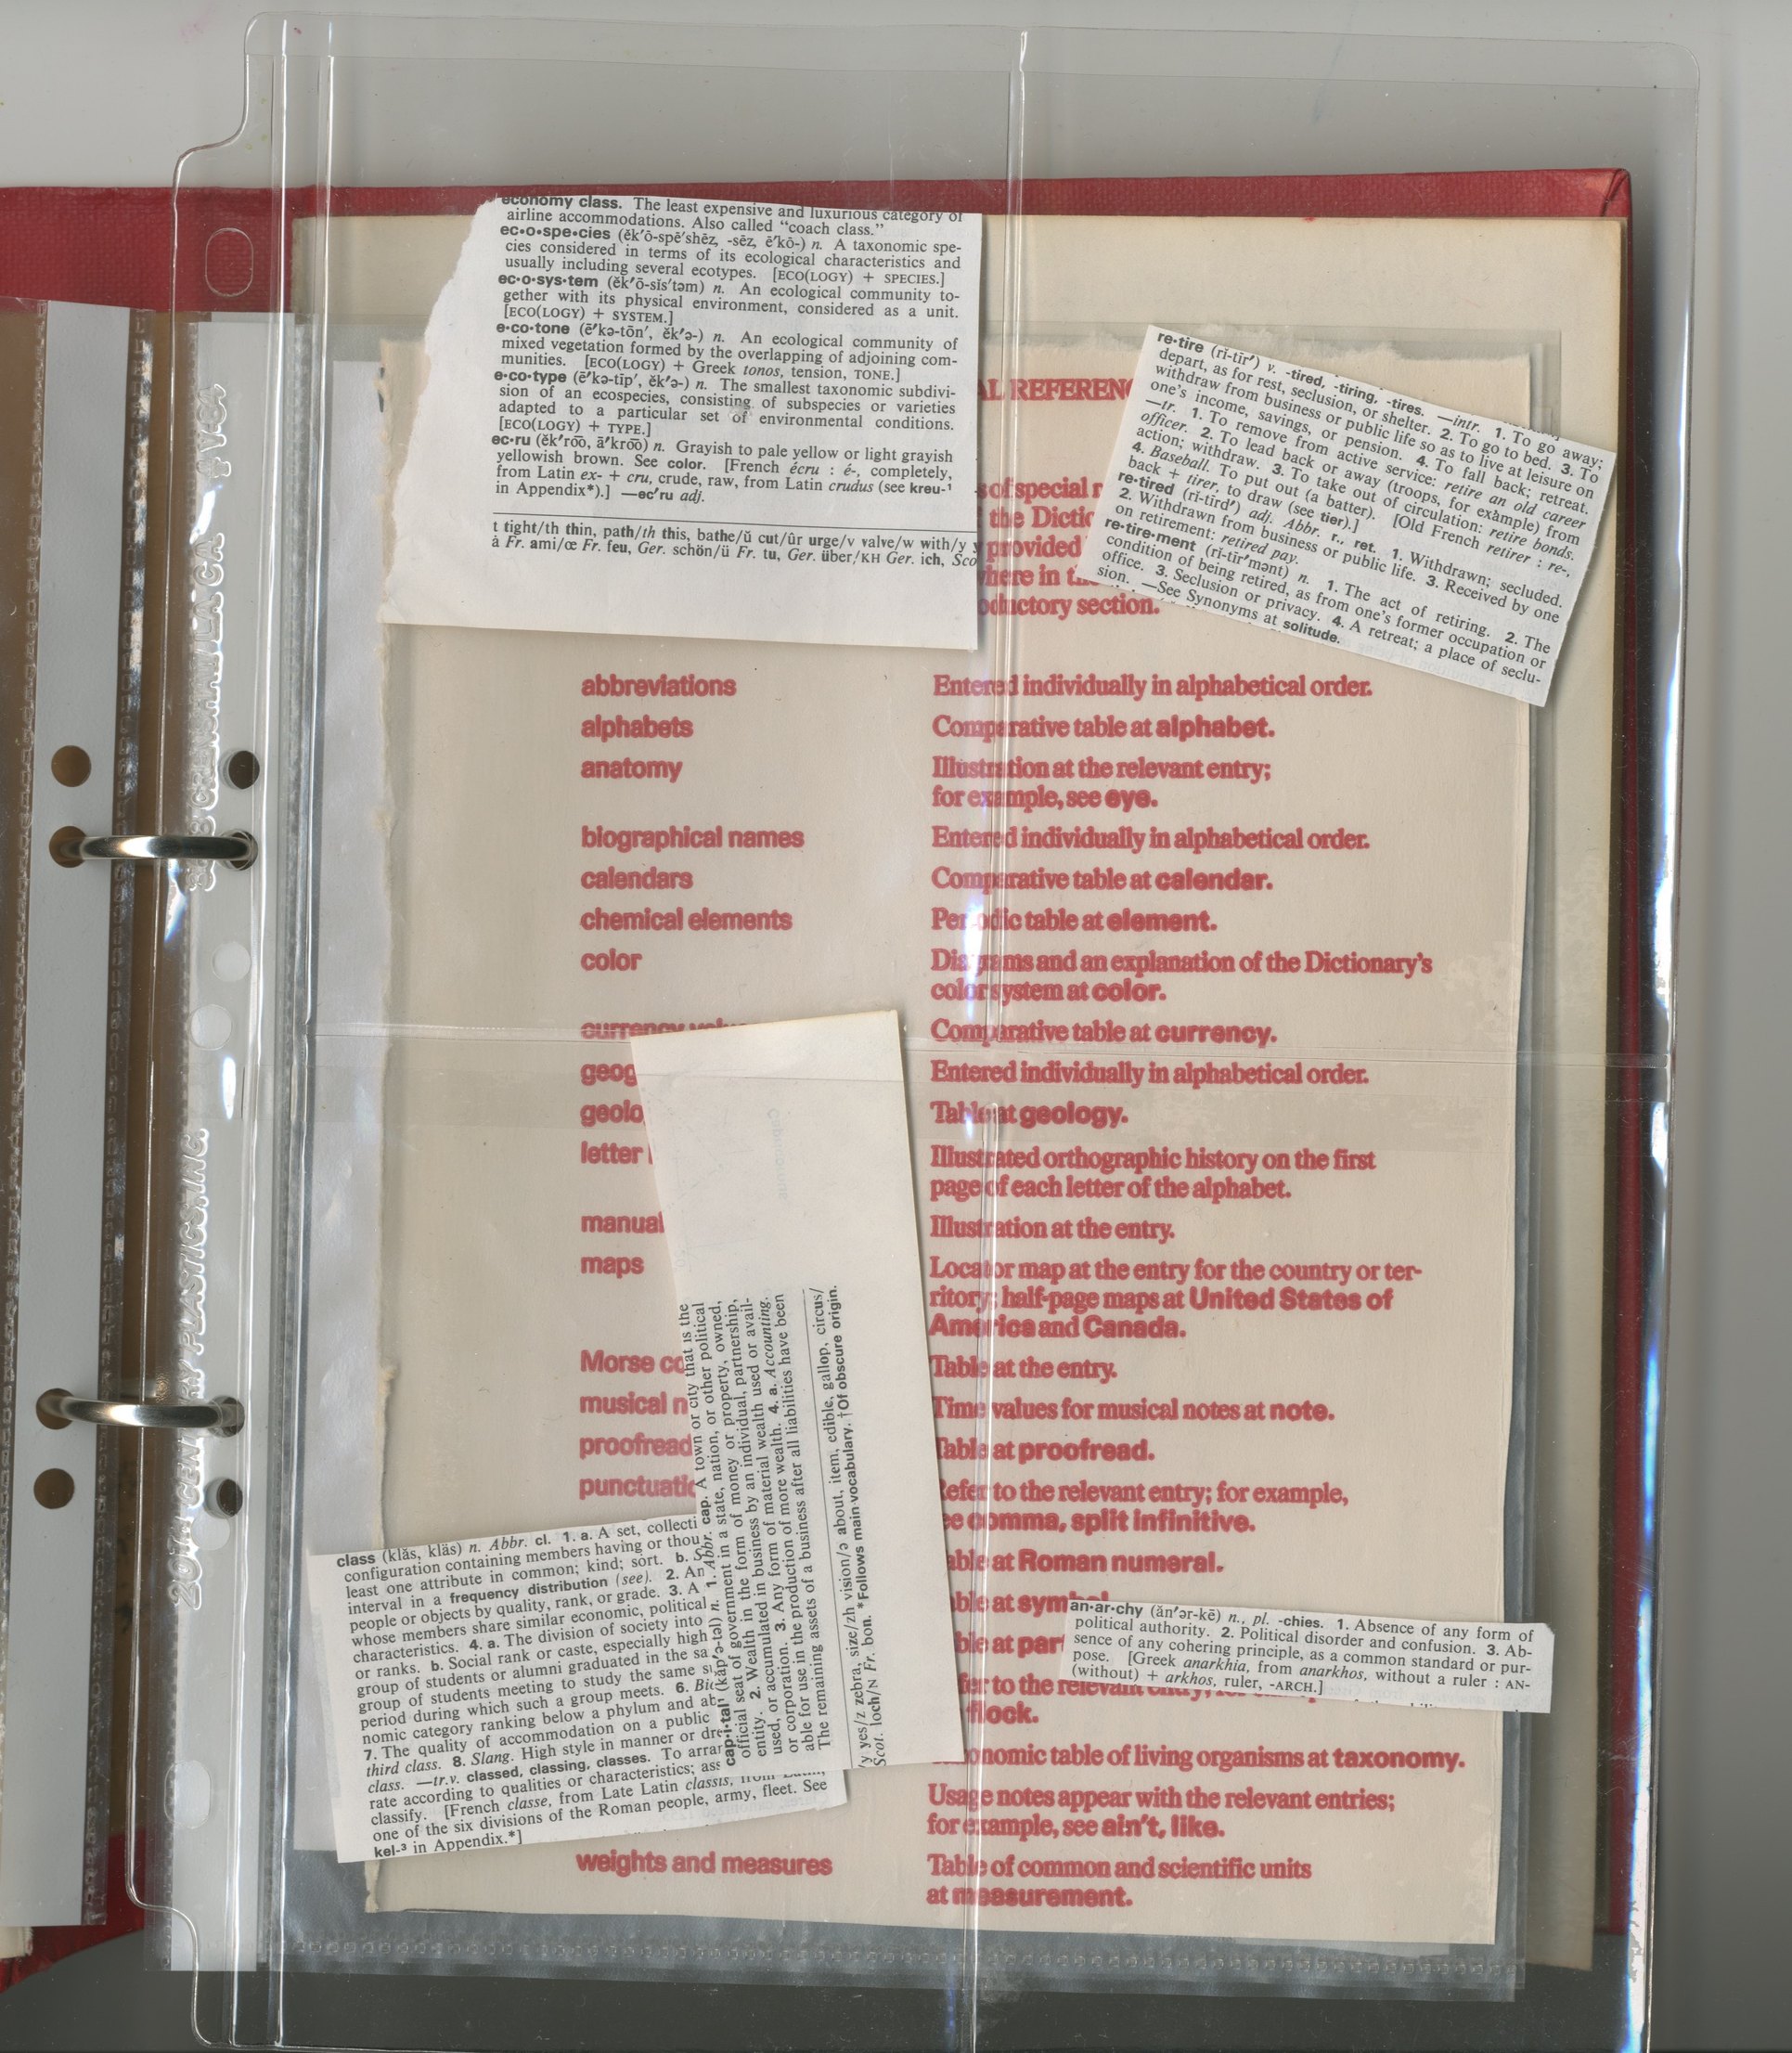 economy class. The least expensive and luxurious category of
airline accommodations. Also called "coach class."
ec•o•spe•cies (ĕk′ō-spē′shēz, -sēz, ē′kō-) n. A taxonomic spe-
cies considered in terms of its ecological characteristics and
usually including several ecotypes. [ECO(LOGY) + SPECIES.]
ec•o•sys•tem (ĕk′ō-sĭs′təm) n. An ecological community to-
gether with its physical environment, considered as a unit.
[ECO(LOGY) + SYSTEM.]
e•co•tone (ē′kə-tōn′, ĕk′ə-) n. An ecological community of
mixed vegetation formed by the overlapping of adjoining com-
munities. [ECO(LOGY) + Greek tonos, tension, TONE.]
e•co•type (ē′kə-tīp′, ĕk′ə-) n. The smallest taxonomic subdivi-
sion of an ecospecies, consisting of subspecies or varieties
adapted to a particular set of environmental conditions.
[ECO(LOGY) + TYPE.]
ec•ru (ĕk′ro͞o, ā′kro͞o) n. Grayish to pale yellow or light grayish
yellowish brown. See color. [French écru : é-, completely,
from Latin ex- + cru, crude, raw, from Latin crudus (see kreu-¹
in Appendix*).] —ec′ru adj.
t tight/th thin, path/th this, bathe/ŭ cut/ûr urge/v valve/w with/y
à Fr. ami/œ Fr. feu, Ger. schön/ü Fr. tu, Ger. über/KH Ger. ich, Sco
re•tire (rĭ-tīr′) v. -tired, -tiring, -tires. —intr. 1. To go away;
depart, as for rest, seclusion, or shelter. 2. To go to bed. 3. To
withdraw from business or public life so as to live at leisure on
one's income, savings, or pension. 4. To fall back; retreat.
—tr. 1. To remove from active service: retire an old career
officer. 2. To lead back or away (troops, for example) from
action; withdraw. 3. To take out of circulation: retire bonds.
4. Baseball. To put out (a batter). [Old French retirer : re-,
back + tirer, to draw (see tier).]
re•tired (rĭ-tīrd′) adj. Abbr. r., ret. 1. Withdrawn; secluded.
2. Withdrawn from business or public life. 3. Received by one
on retirement: retired pay.
re•tire•ment (rĭ-tīr′mənt) n. 1. The act of retiring. 2. The
condition of being retired, as from one's former occupation or
office. 3. Seclusion or privacy. 4. A retreat; a place of seclu-
sion. —See Synonyms at solitude.
AL REFERENC
s of special r
the Dictio
provided
here in
oductory section.
abbreviations Entered individually in alphabetical order.
alphabets Comparative table at alphabet.
anatomy Illustration at the relevant entry;
for example, see eye.
biographical names Entered individually in alphabetical order.
calendars Comparative table at calendar.
chemical elements Periodic table at element.
color Diagrams and an explanation of the Dictionary's
color system at color.
currency Comparative table at currency.
geog Entered individually in alphabetical order.
geolo Table at geology.
letter Illustrated orthographic history on the first
page of each letter of the alphabet.
manual Illustration at the entry.
maps Locator map at the entry for the country or ter-
ritory; half-page maps at United States of
America and Canada.
Morse co Table at the entry.
musical n Time values for musical notes at note.
proofread Table at proofread.
punctuatio Refer to the relevant entry; for example,
see comma, split infinitive.
able at Roman numeral.
able at symbol
ble at par
fer to the relevant entry;
flock.
onomic table of living organisms at taxonomy.
Usage notes appear with the relevant entries;
for example, see ain't, like.
weights and measures Table of common and scientific units
at measurement.
an•ar•chy (ăn′ər-kē) n., pl. -chies. 1. Absence of any form of
political authority. 2. Political disorder and confusion. 3. Ab-
sence of any cohering principle, as a common standard or pur-
pose. [Greek anarkhia, from anarkhos, without a ruler : AN-
(without) + arkhos, ruler, -ARCH.]
cap•i•tal¹ (kăp′ə-təl) n. 1. Abbr. cap. A town or city that is the
official seat of government in a state, nation, or other political
entity. 2. Wealth in the form of money or property, owned,
used, or accumulated in business by an individual, partnership,
or corporation. 3. Any form of material wealth used or avail-
able for use in the production of more wealth. 4. a. Accounting.
The remaining assets of a business after all liabilities have been
y yes/z zebra, size/zh vision/ə about, item, edible, gallop, circus/
Scot. loch/N Fr. bon. *Follows main vocabulary. †Of obscure origin.
class (klăs, kläs) n. Abbr. cl. 1. a. A set, collecti
configuration containing members having or thou
least one attribute in common; kind; sort. b. S
interval in a frequency distribution (see). 2. An
people or objects by quality, rank, or grade. 3. A
whose members share similar economic, political
characteristics. 4. a. The division of society into
or ranks. b. Social rank or caste, especially high
group of students or alumni graduated in the sa
group of students meeting to study the same s
period during which such a group meets. 6. Bio
nomic category ranking below a phylum and ab
7. The quality of accommodation on a public
third class. 8. Slang. High style in manner or dre
class. —tr.v. classed, classing, classes. To arra
rate according to qualities or characteristics; ass
classify. [French classe, from Late Latin classis, from Latin,
one of the six divisions of the Roman people, army, fleet. See
kel-³ in Appendix.*]
20TH CENTURY PLASTICS INC.
CRENSHAW LA CA V84